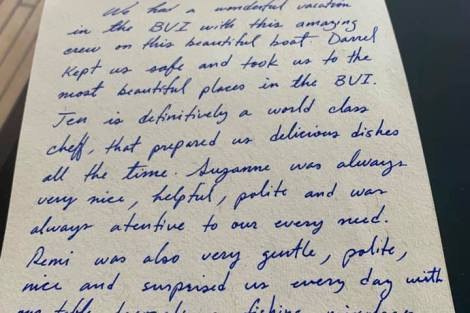 We had a wonderful vacation
in the BVI with this amazing
crew on this beautiful boat. Darrel
kept us safe and took us to the
most beautiful places in the BVI.
Jen is definitively a world class
cheff, that prepared us delicious dishes
all the time. Suzanne was always
very nice, helpful, polite and was
always atentive to our every need.
Remi was also very gentle, polite,
nice and surprised us every day with
table fishing